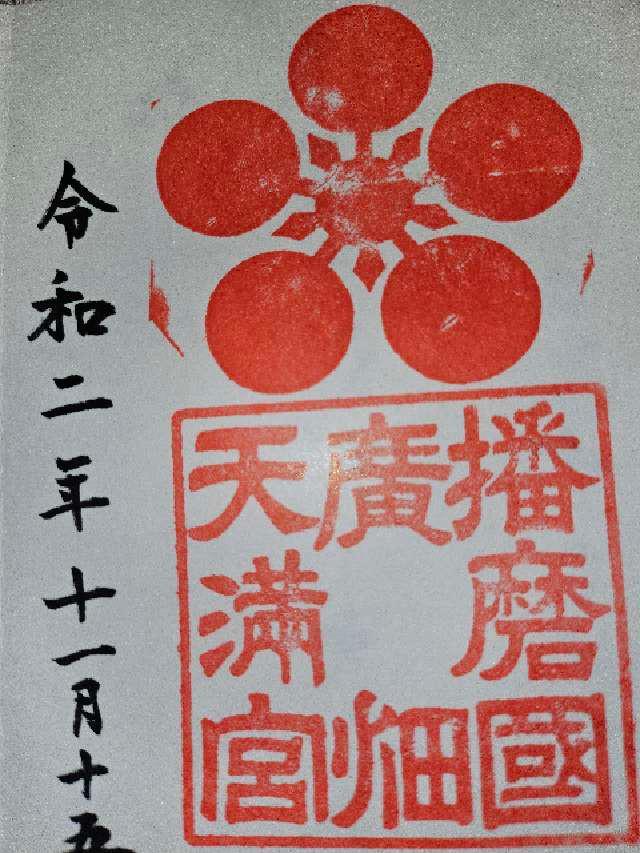 播磨國
廣畑
天満宮
令和二年十一月十五